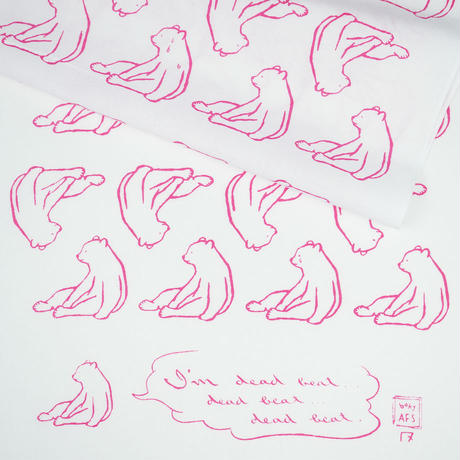 I'm dead beat...
dead beat...
dead beat.
AFS
17